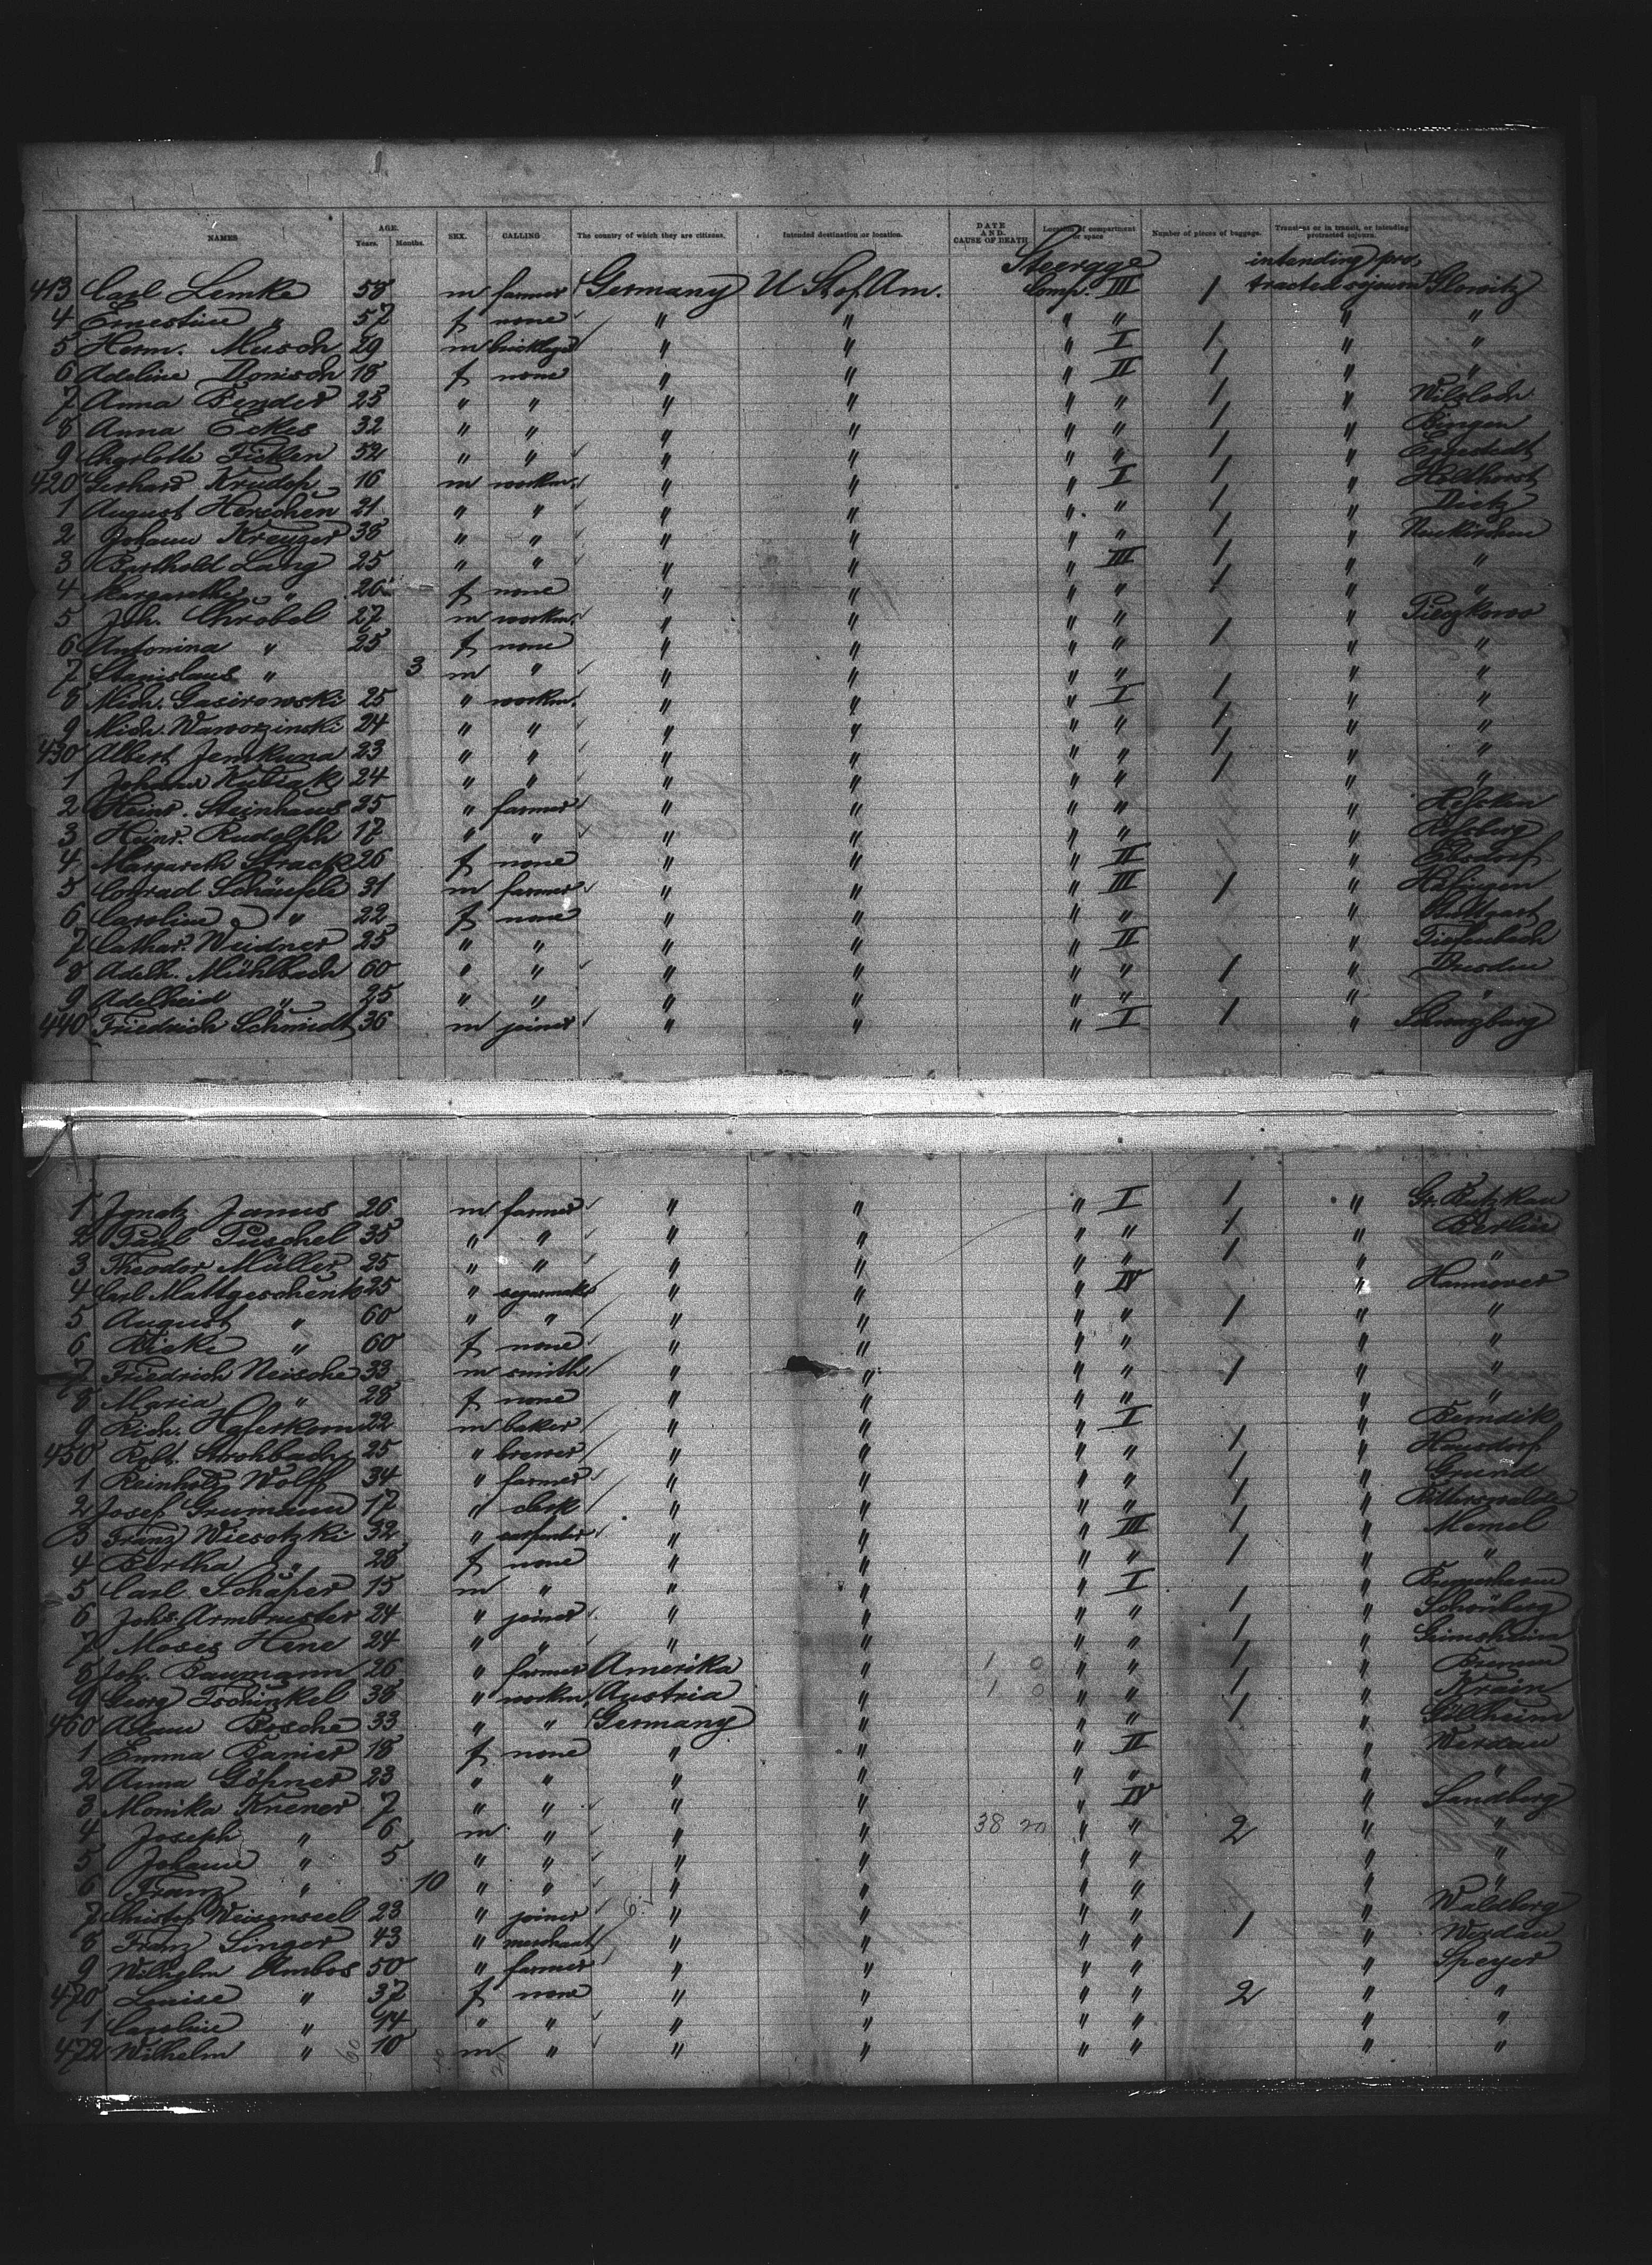 NAMES AGE. Years. Months. SEX. CALLING The country of which they are citizens. Intended destination or location. DATE AND CAUSE OF DEATH Location of compartment or space Number of pieces of baggage. Transients or in transit, or intending protracted sojourn.
Steerage intending pro-
413 Carl Lemke 58 m farmer Germany U St of Am. Comp. III 1 tracted sojourn Glowitz
4 Ernestine " 57 f none " " " " " "
5 Herm. Musch 29 m bricklayer " " " I 1 " "
6 Adeline Donisch 18 f none " " " II 1 " "
7 Anna Bender 25 " " " " " " 1 "
8 Anna Eckes 32 " " " " " " 1 " Bingen
9 Charlotte Ficken 52 " " " " " " 1 " Eggestedt
420 Gerhard Krudop 16 m workm. " " " I 1 " Holthorst
1 August Herschen 21 " " " " " " 1 " Dietz
2 Johann Kreuzer 38 " " " " " " 1 " Neukirchen
3 Barthold Lang 25 " " " " " III 1 " "
4 Margarethe " 26 f none " " " " 1 " "
5 Joh. Chrobel 27 m workm. " " " " "
6 Antonina " 25 f none " " " " 1 " "
7 Stanislaus " 3 m " " " " " " "
8 Mich. Gasirowski 25 " workm. " " " I 1 " "
9 Mich. Waworzinski 24 " " " " " " 1 " "
430 Albert Jemkuna 23 " " " " " " 1 " "
1 Johann Kubiak 24 " " " " " " 1 " "
2 Heinr. Steinhaus 25 " farmer " " " " "
3 Heinr. Rudolph 17 " " " " " " "
4 Margareth Strack 26 f none " " " II 1 " Ebsdorf
5 Conrad Schäufele 31 m farmer " " " III 1 " Häfingen
6 Caroline " 22 f none " " " " " Stuttgart
7 Cathar. Weidner 25 " " " " " II " Tiefenbach
8 Adelh. Mühlbach 60 " " " " " " 1 " Dresden
9 Adelheid " 25 " " " " " " " "
440 Friedrich Schmidt 36 m joiner " " " I 1 "
1 Ignatz Janus 26 m farmer " " " I 1 " Gr. Butzkau
2 Paul Püschel 35 " " " " " " 1 " Berlin
3 Theodor Müller 25 " " " " " " 1 " "
4 Carl Mattgeschenk 25 " segarmak " " " IV " Hannover
5 August " 60 " " " " " " 1 " "
6 Rieke " 60 f none " " " " " "
7 Friedrich Neische 33 m smith " " " " 1 " "
8 Maria " 28 f none " " " " " "
9 Rich. Haferkorn 22 m baker " " " I "
450 Robt. Strohbach 25 " brewer " " " " 1 " Hausdorf
1 Reinhold Wolff 34 " farmer " " " " 1 " Grund
2 Josef Grumann 17 " clerk " " " " 1 " Rittersvalde
3 Franz Wiesotzki 32 " carpenter " " " III 1 " Memel
4 Bertha " 28 f none " " " " 1 " "
5 Carl Schäfer 15 m " " " " I " Bremerhaven
6 Johs. Armbruster 24 " joiner " " " " 1 " Schönberg
7 Moses Hene 24 " " " " " " 1 " Geimsheim
8 Joh. Baumann 26 " farmer Amerika " 1 0 " " 1 " Bremen
9 Georg Tschinkel 38 " workm. Austria " 1 0 " " 1 " Krain
460 Adam Bosche 33 " " Germany " " " 1 " Göllheim
1 Emma Banier 18 f none " " " II " Werdau
2 Anna Göpner 23 " " " " " " " "
3 Monika Knener 7 " " " " " IV " Landberg
4 Joseph " 6 m " " " 38 20 " " 2 " "
5 Johann " 5 " " " " " " " "
6 Franz " 10 " " " " " " " "
7 Christof Weisenseel 23 " joiner " " " " " Waldberg
8 Franz Singer 43 " merchant " " " " 1 " Werdau
9 Wilhelm Ambos 50 " farmer " " " " " Speyer
470 Louise " 37 f none " " " " 2 " "
1 Caroline " 14 " " " " " " " "
472 Wilhelm " 10 m " " " " " " "